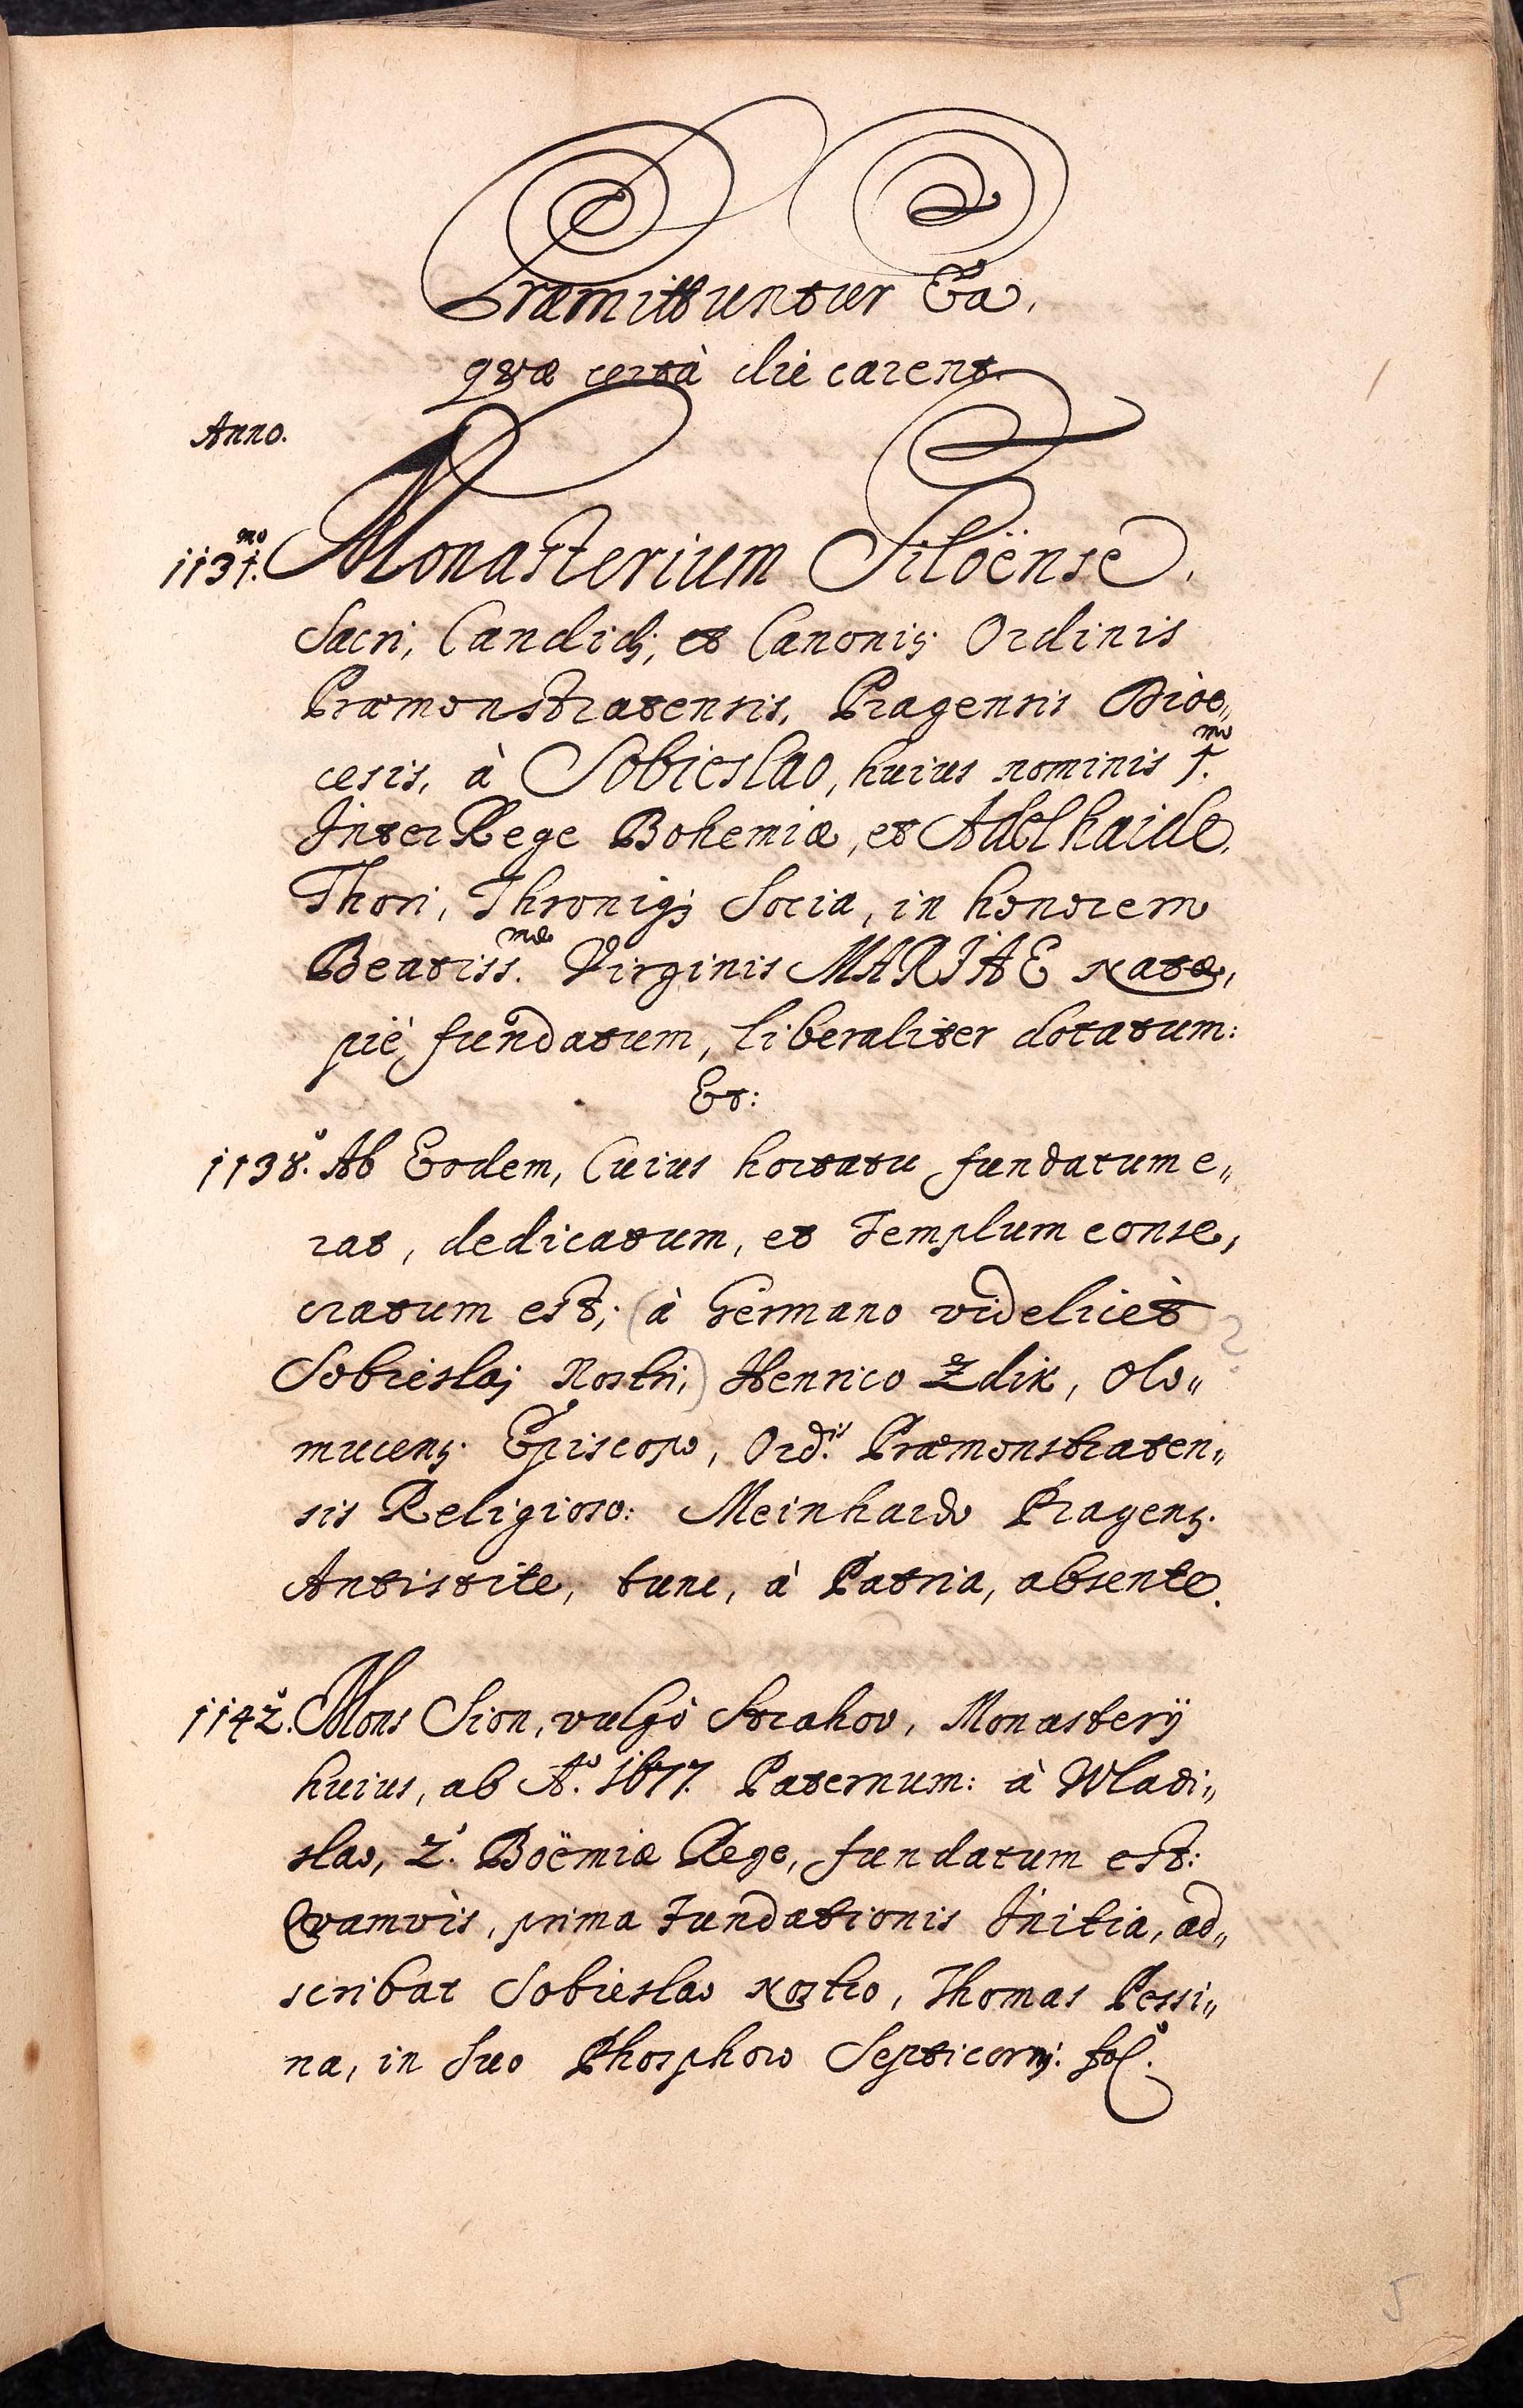 Præmittuntur Ea,
qvæ certà die carent.
Anno.
1131.mo Monasterium Siloënse,
Sacri, Candidi; et Canonici Ordinis
Præmonstratensis, Pragensis Diœ„
cesis, à Sobieslao, huius nominis 1.mo
InterRege Bohemiæ, et Adelhaide,
Thori, Thronique Socia, in honorem
Beatiss.mæ Virginis MARIAE natæ,
piè, fundatum, liberaliter dotatum:
Et:
1138.o Ab Eodem, Cuius hortatu fundatum e„
rat, dedicatum, et Templum conse„
cratum est; (à Germano videlicèt
Sobieslai Nostri;) Henrico Zdik, Olo„
mucens. Episcopo, Ord.is Præmonstraten„
sis Religioso: Meinhardo Pragens.
Antistite, tunc, à Patria, absente.
1142.o Mons Sion, vulgò Strahov, Monasterÿ
huius, ab A.o 1677. Paternum: à Wladi„
slao, 2.o Boëmiæ Rege, fundatum est:
Qvamvìs, prima Fundationis Initia, ad„
scribat Sobieslao nostro, Thomas Pessi„
na, in Suo Phosphoro Septicorni. fol.o
5